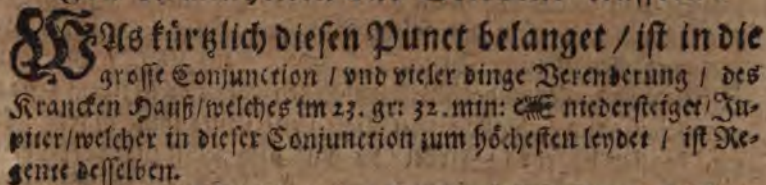 WAs kürtzlich diesen Punct belanget / ist in die
grosse Conjunction / vnd vieler dinge Verenderung / des
Krancken Hauß/welches im 23. gr: 32. min: niedersteiget/Ju-
piter/welcher in dieser Conjunction zum höchesten leydet / ist Re-
gente desselben.